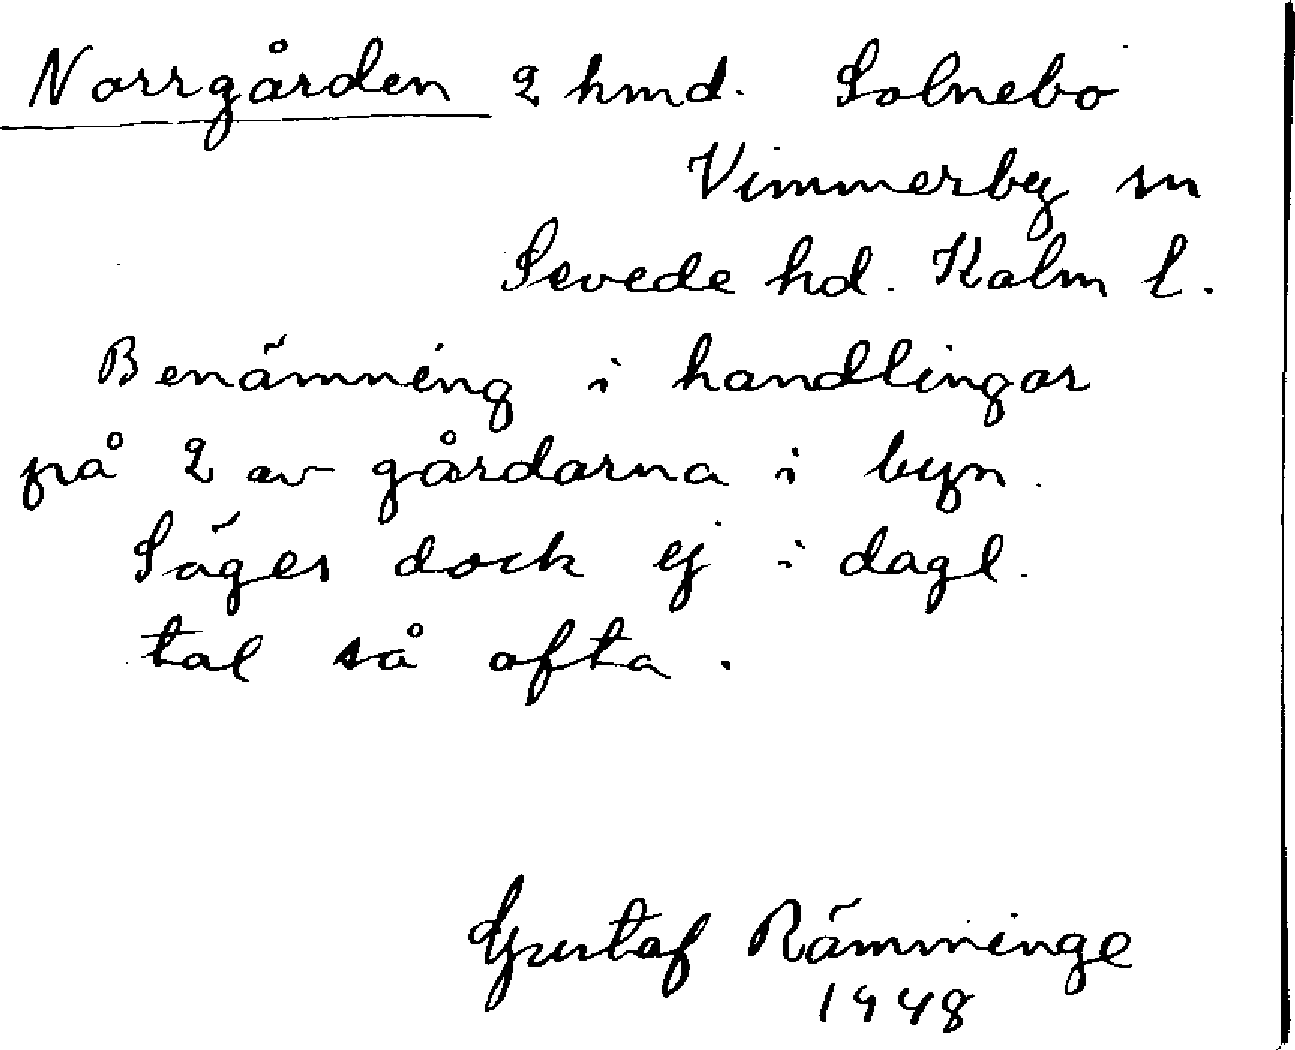 Norrgården 2 hmd. Solnebo
Vimmerby sn
Sevede hd. Kalm l.
Benämning i handlingar
på 2 av gårdarna i byn.
Säges dock ej i dagl.
tal så ofta.
Gustaf Rämminge
1948